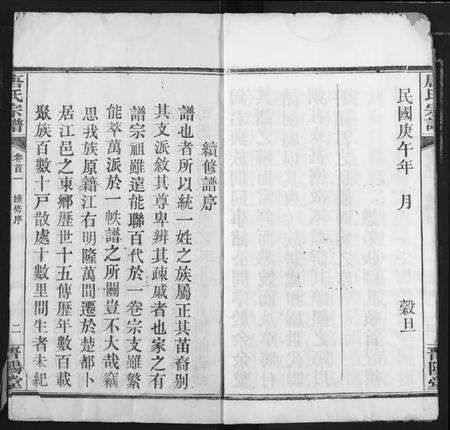 唐氏宗譜
民國庚午年 月 穀旦
晉陽堂
續修譜序
譜也者所以統一姓之族屬正其苗裔别
其支派敘其尊卑辨其疎戚者也家之有
譜宗祖雖遠能聯百代於一卷宗支雖繁
能萃萬派於一帙譜之所關豈不大哉竊
思我族原籍江右明隆萬間遷於楚都卜
居江邑之東鄉歷世十五傳歷年數百載
聚族百數十戸散處十數里間生者未紀
唐氏宗譜
卷首一 續修序 二
晉陽堂